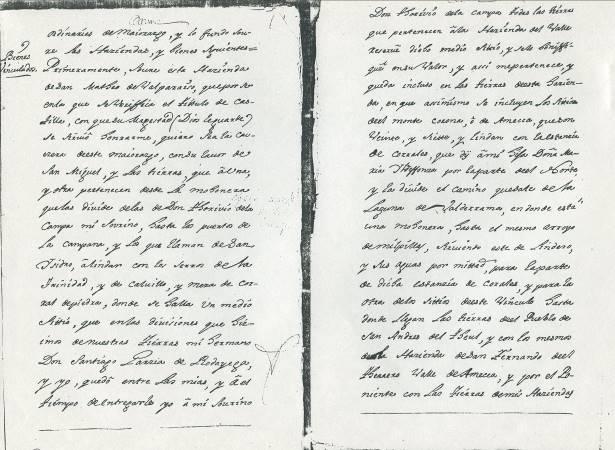 ordinarios de Maiorazgo, y lo fundo sou-
re las Haziendas, y bienes siguientes=
9
Bienes
Vinculados.
Primeramente, soure esta Hazienda
de San Matheo de Valparaiso, que por ser
en la que se Veriffica el titulo de Cas-
tilla, con que su Magestad (Dios le guarde)
se sirvió honrarme, quiero sea la Ca-
vezera de este maiorazgo, con su lauor de
San Miguel, y las tierras, que á Una,
y otra pertenecen desde la mohonera
que las divide de las de Don Thorivio de la
Campa mi sourino, hasta los puertos de
la Campana, y los que llaman de San
Isidro, alindar con las serros de la
Trinidad, y de Calvillo, y mesa de Cor-
rral de piedras, donde se halla un medio
sitio, que en las divisiones que hiz-
imos de nuestras tierras mi hermano
Don Santiago Garzia de Rodayega,
y yo, quedó entre las mias, y á el
tiempo de entregarle yo á mi sourino
Don Thorivio de la Campa todas las tierras
que pertenecen á la Hazienda del Valle
reservé dicho medio sitio, y se le
en su Valor, y assi me pertenece, y
queda incluso en las tierras de esta Hazien-
da, en que assimismo se incluyen los sitios
del monte Corona, ó de Ameca, que son
Veinte, y siette, y lindan con la estancia
de Corrales, que dí á mi hija Doña Ma-
ria Ildefonsa por la parte del Norte
y la divide el camino que sale de la
Laguna de Valderrama, en donde está
una mohonera, hasta el mesmo arroyo
de milpillas, siguiendo este de lindero,
y sus aguas por mittad, para la parte
de dicha estancia de Corrales, y para la
otra de los sitios de este Vinculo hasta
donde llegan las tierras del Pueblo de
San Andres del Theul, y con los mesmos
Hazienda de San Fernando del
Herrero Valle de Ameca, y por el Po-
niente con las tierras de mis Haziendas